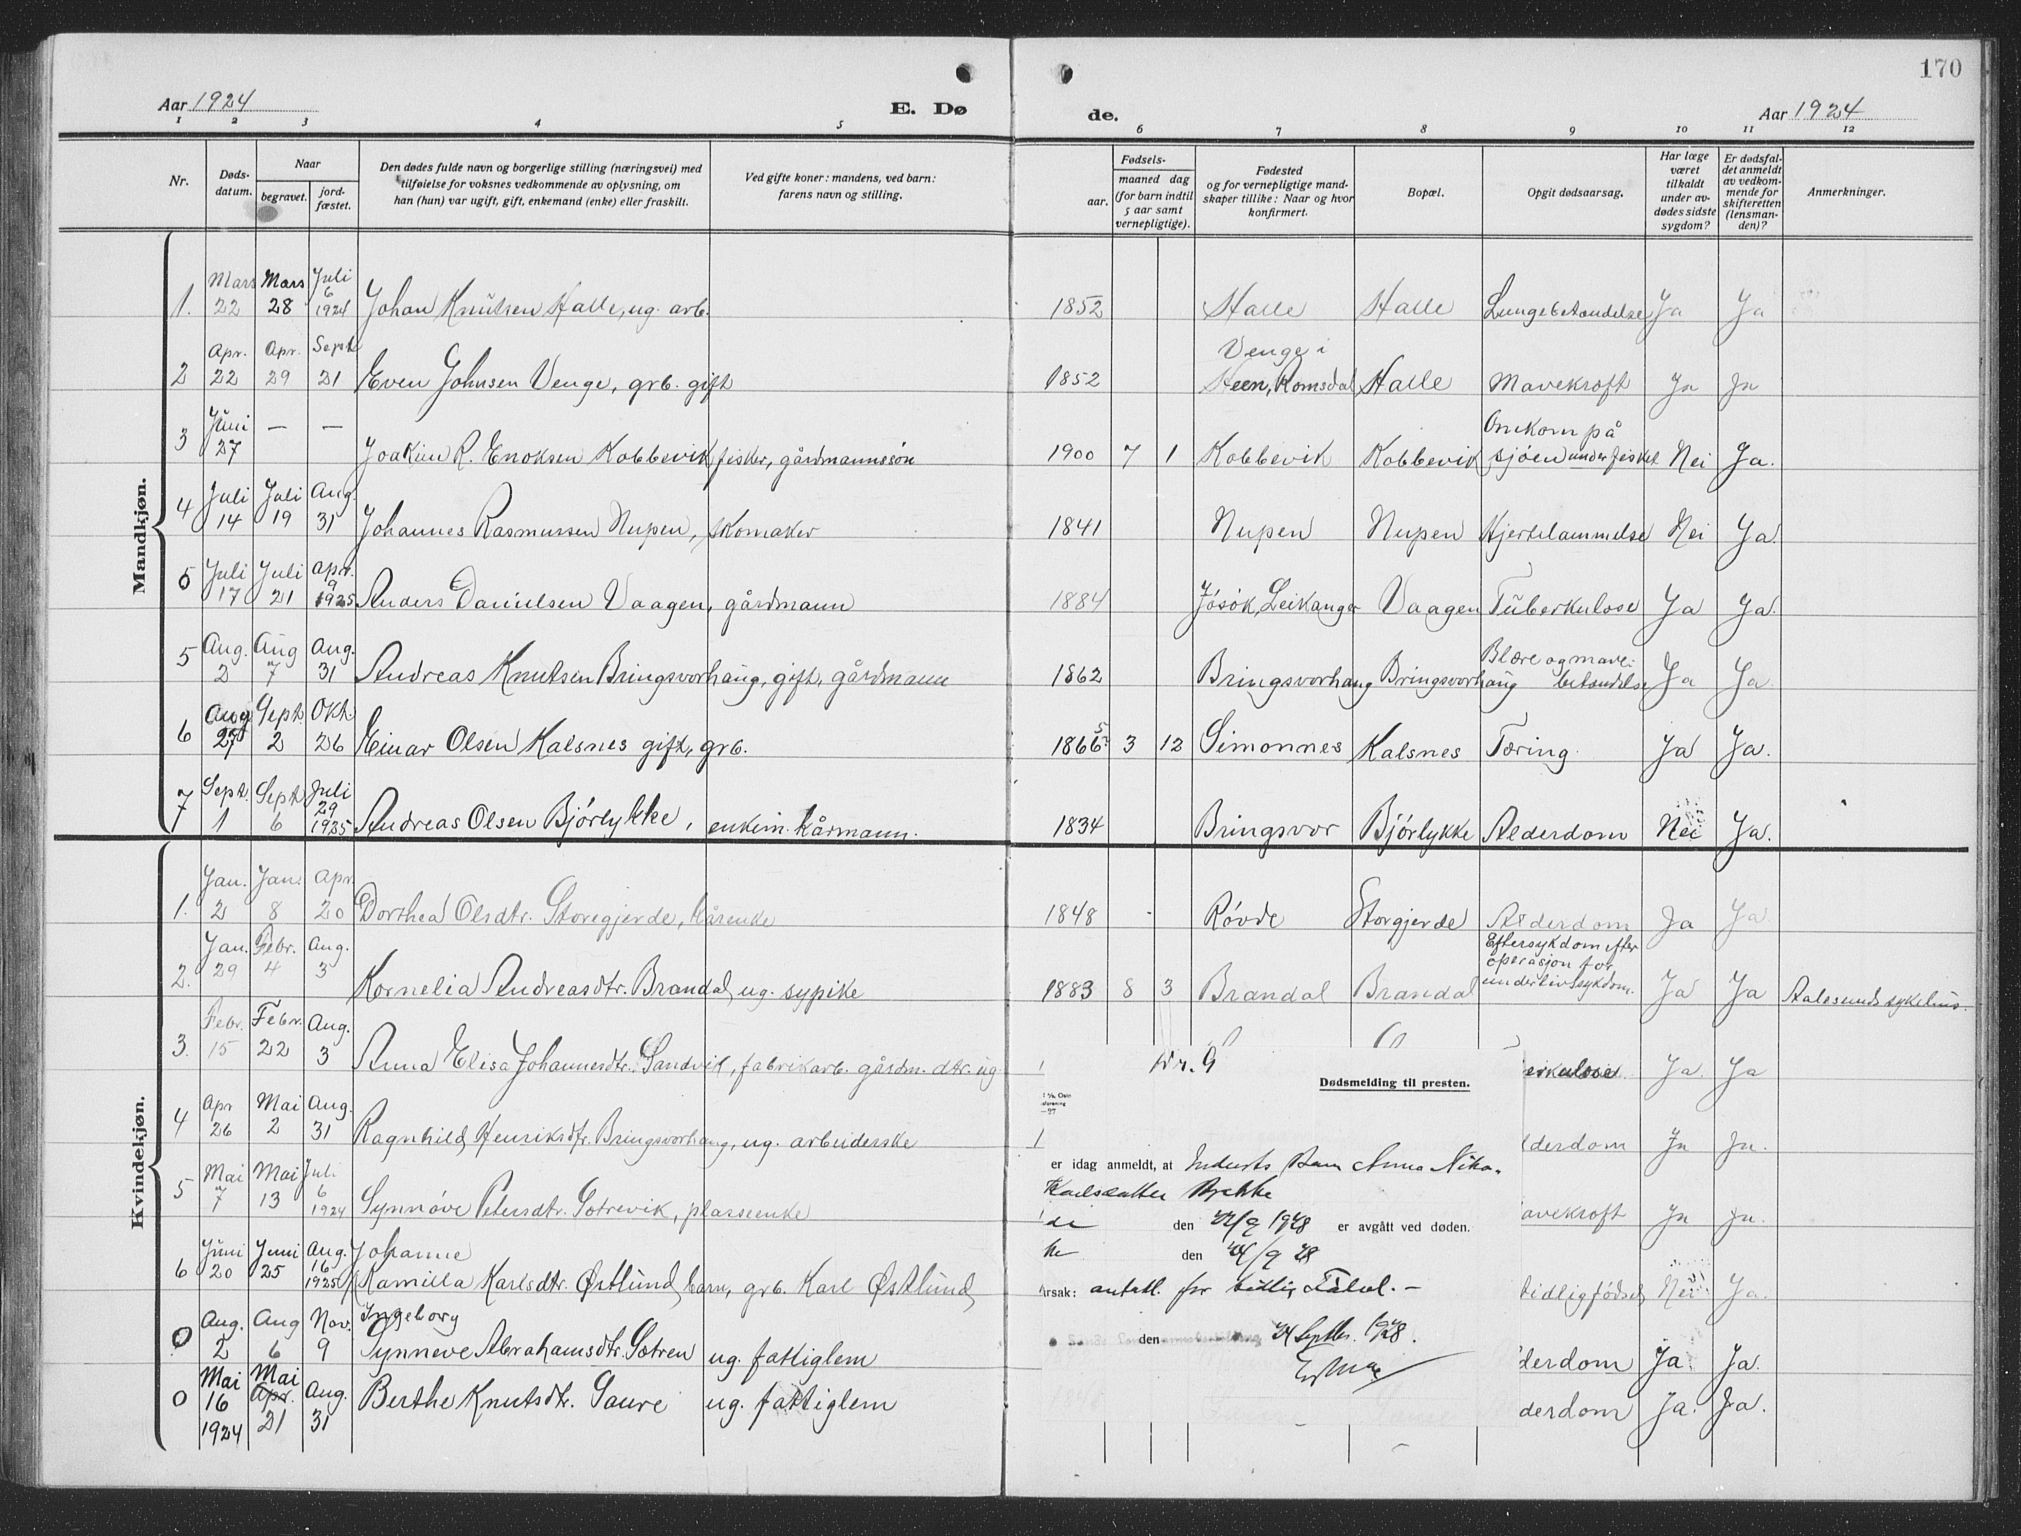 170
Aar 1924
E. Dø
de.
Aar 1924
1 2 3 4 5
6 7 8 9 10 11 12
Nr.
Døds-
datum.
Naar
begravet.
jord-
fæstet.
Den dødes fulde navn og borgerlige stilling (næringsvei) med
tilføielse for voksnes vedkommende av oplysning, om
han (hun) var ugift, gift, enkemand (enke) eller fraskilt.
Ved gifte koner: mandens, ved barn:
farens navn og stilling.
Fødsels-
aar.
maaned dag
(for barn indtil
5 aar samt
vernepligtige).
Fødested
og for vernepligtige mand-
skaper tillike: Naar og hvor
konfirmert.
Bopæl.
Opgit dødsaarsag.
Har læge
været
tilkaldt
under av-
dødes sidste
sygdom?
Er dødsfal-
det anmeldt
av vedkom-
mende for
skifteretten
(lensman-
den)?
Anmerkninger.
Mandkjøn.
1. Mars 22 Mars 28 Juli 6 1924 Johan Knutsen Halle, ug. arb. 1852 Halle Halle Lungebetændelse Ja Ja
2 Apr. 22 Apr. 29 Sept 21 Even Johnsen Venge, grb. gift 1852 Venge i Heen, Romsdal Halle Mavekræft Ja Ja
3 Juni 27 — — Joakim R. Enoksen Kobbevik, fisker, gårdmannssøn 1900 7 1 Kobbevik Kobbevik Omkom på sjøen under fisket Nei Ja.
4 Juli 14 Juli 19 Aug. 31 Johannes Rasmussen Nupen, skomaker 1841 Nupen Nupen Hjertelammelse Nei Ja.
5 Juli 17 Juli 21 Apr. 9 1925 Anders Danielsen Vaagen, gårdmann 1884 Jøsøk, Leikanger Vaagen Tuberkulose Ja Ja.
5 Aug. 2 Aug 7 Aug. 31 Andreas Knutsen Bringsvorhaug, gift, gårdmann 1862 Bringsvorhaug Bringsvorhaug Blære og mavebetændelse Ja Ja
6 Aug 27 Sept. 2 Okt. 26 Einar Olsen Kalsnes gift, grb. 1866 5 3 12 Simonnes Kalsnes Tæring. Ja Ja.
7 Sept. 1 Sept. 6 Juli 29 1925 Andreas Olsen Bjørlykke, enkem. kårmann. 1834 Bringsvor Bjørlykke Alderdom Nei Ja.
Kvindekjøn.
1. Jan. 2 Jan. 8 Apr 20 Dorthea Olsdtr. Storegjerde, kårenke 1848 Røvde Storgjerde Alderdom Ja Ja
2. Jan. 29 Febr. 4 Aug. 3 Kornelia Andreasdtr. Brandal, ug. sypike 1883 8 3 Brandal Brandal Eftersykdom efter operasjon for underlivssykdom. Ja Ja Aalesunds sykehus.
3. Febr. 15 Febr. 22 Aug. 3 Anna Elisa Johannesdtr. Sandvik, fabrikarb. gårdm. dtr. ug. erkulose. Ja. Ja
4 Apr 26 Mai 2 Aug. 31 Ragnhild Henriksdtr. Bringsvorhaug, ug. arbeiderske lderdom Ja Ja.
5 Mai 7 Mai 13 Juli 6 1924 Synnøve Petersdtr. Sætrevik, plasseenke avekræft Ja Ja.
6 Juni 20 Juni 25 Aug. 16 1925 Johanne Kamilla Karlsdtr. Østlund, barn, grb. Karl Østlund, tidlig fødsel Nei Ja.
0 Aug. 2 Aug 6 Nov. 9 Ingeborg Synneve Abrahamsdtr. Sætren ug. fattiglem derdom Ja. Ja.
0 Mai 16 1924 Mai Apr. 21 Aug. 31 Berthe Knutsdtr. Saure ug. fattiglem derdom Ja. Ja.
Nr. 9
Dødsmelding til presten.
er idag anmeldt, at
Karlsdatter Brekke
den 22/9 1928 er avgått ved døden.
den 24/9 28
rsak: antatt. for tidlig Fødsel. –
den 24 Septbr. 1928.